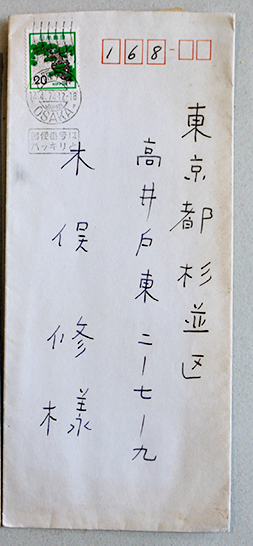 168-
20
OSAKA
郵便番号は
ハッキリと
東京都杉並区
高井戸東二ー七ー九
木俣修様